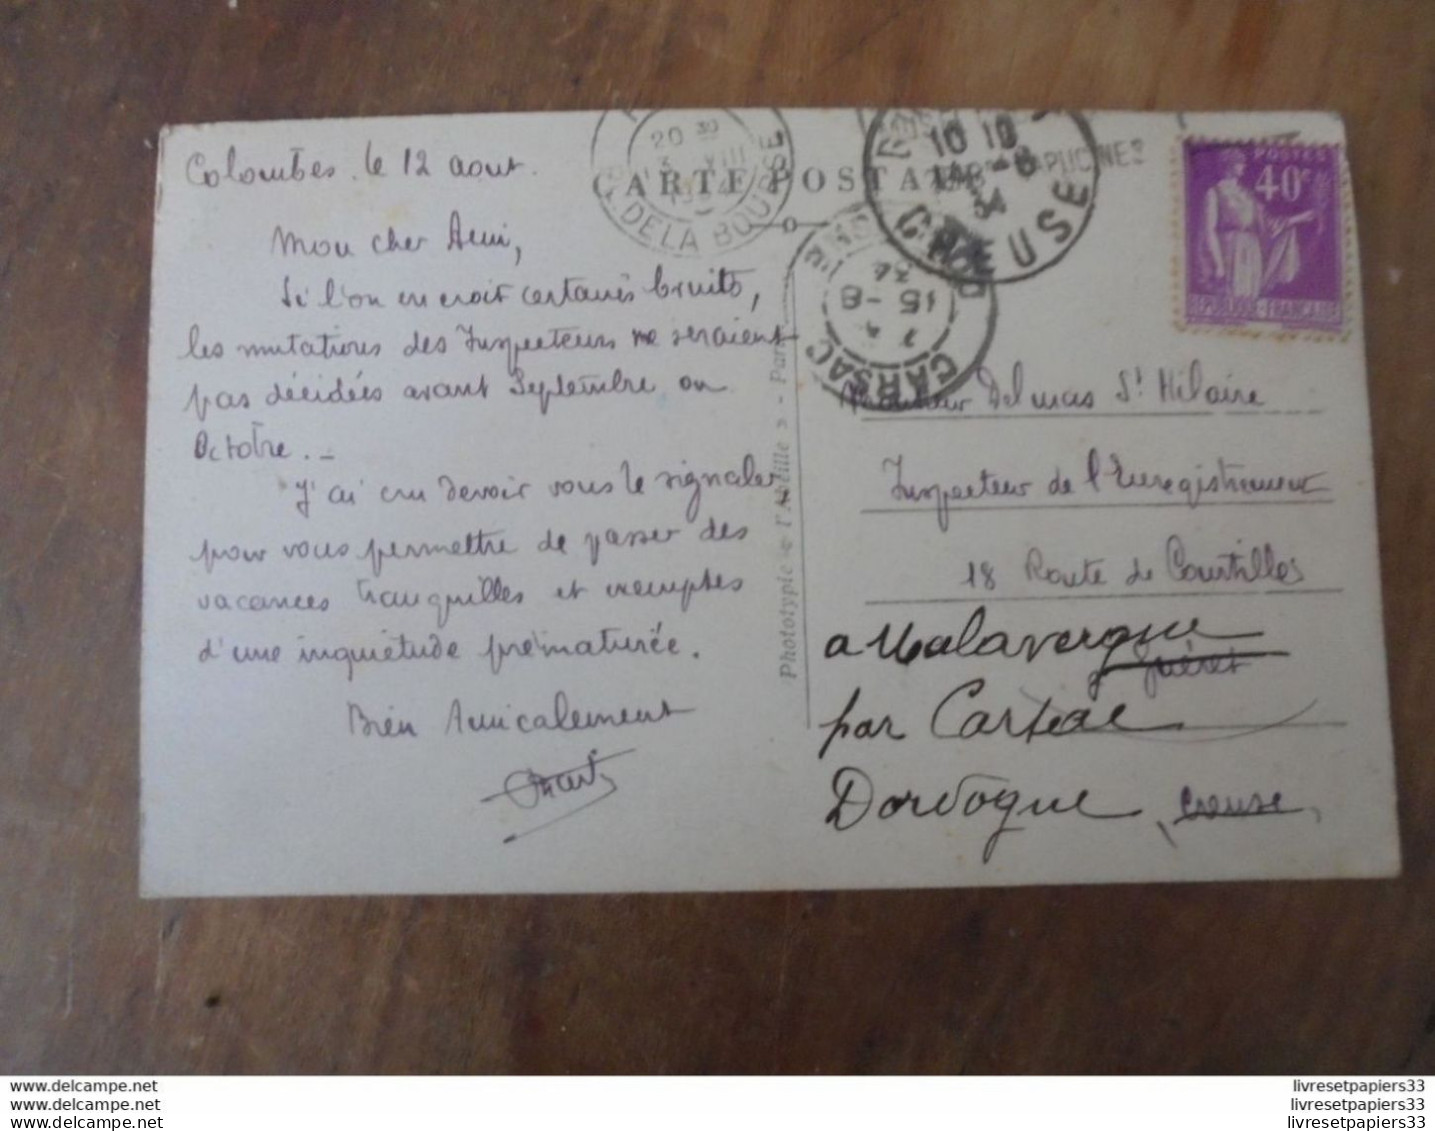 Colombes. le 12 aout.
Mon cher Ami,
Si l'on en croit certains bruits,
les mutations des Inspecteurs ne seraient
pas décidées avant Septembre ou
Octobre. _
J'ai cru devoir vous le signaler
pour vous permettre de passer des
vacances tranquilles et exemptes
d'une inquiétude prématurée.
Bien Amicalement
CARTE POSTALE
20 30
13 VIII
1934
R. DE LA BOURSE
10 10
14 -8
34
CREUSE
CARSAC
15 -8
34
POSTES
40c
REPUBLIQUE-FRANÇAISE
Phototypie « l'Abeille » - Paris
Monsieur Delmas St Hilaire
Inspecteur de l'Enregistrement
18 Route de Courtilles
a Malavergne
Guéret
par Carsac
Dordogne
Creuse
www.delcampe.net
www.delcampe.net
www.delcampe.net
livresetpapiers33
livresetpapiers33
livresetpapiers33